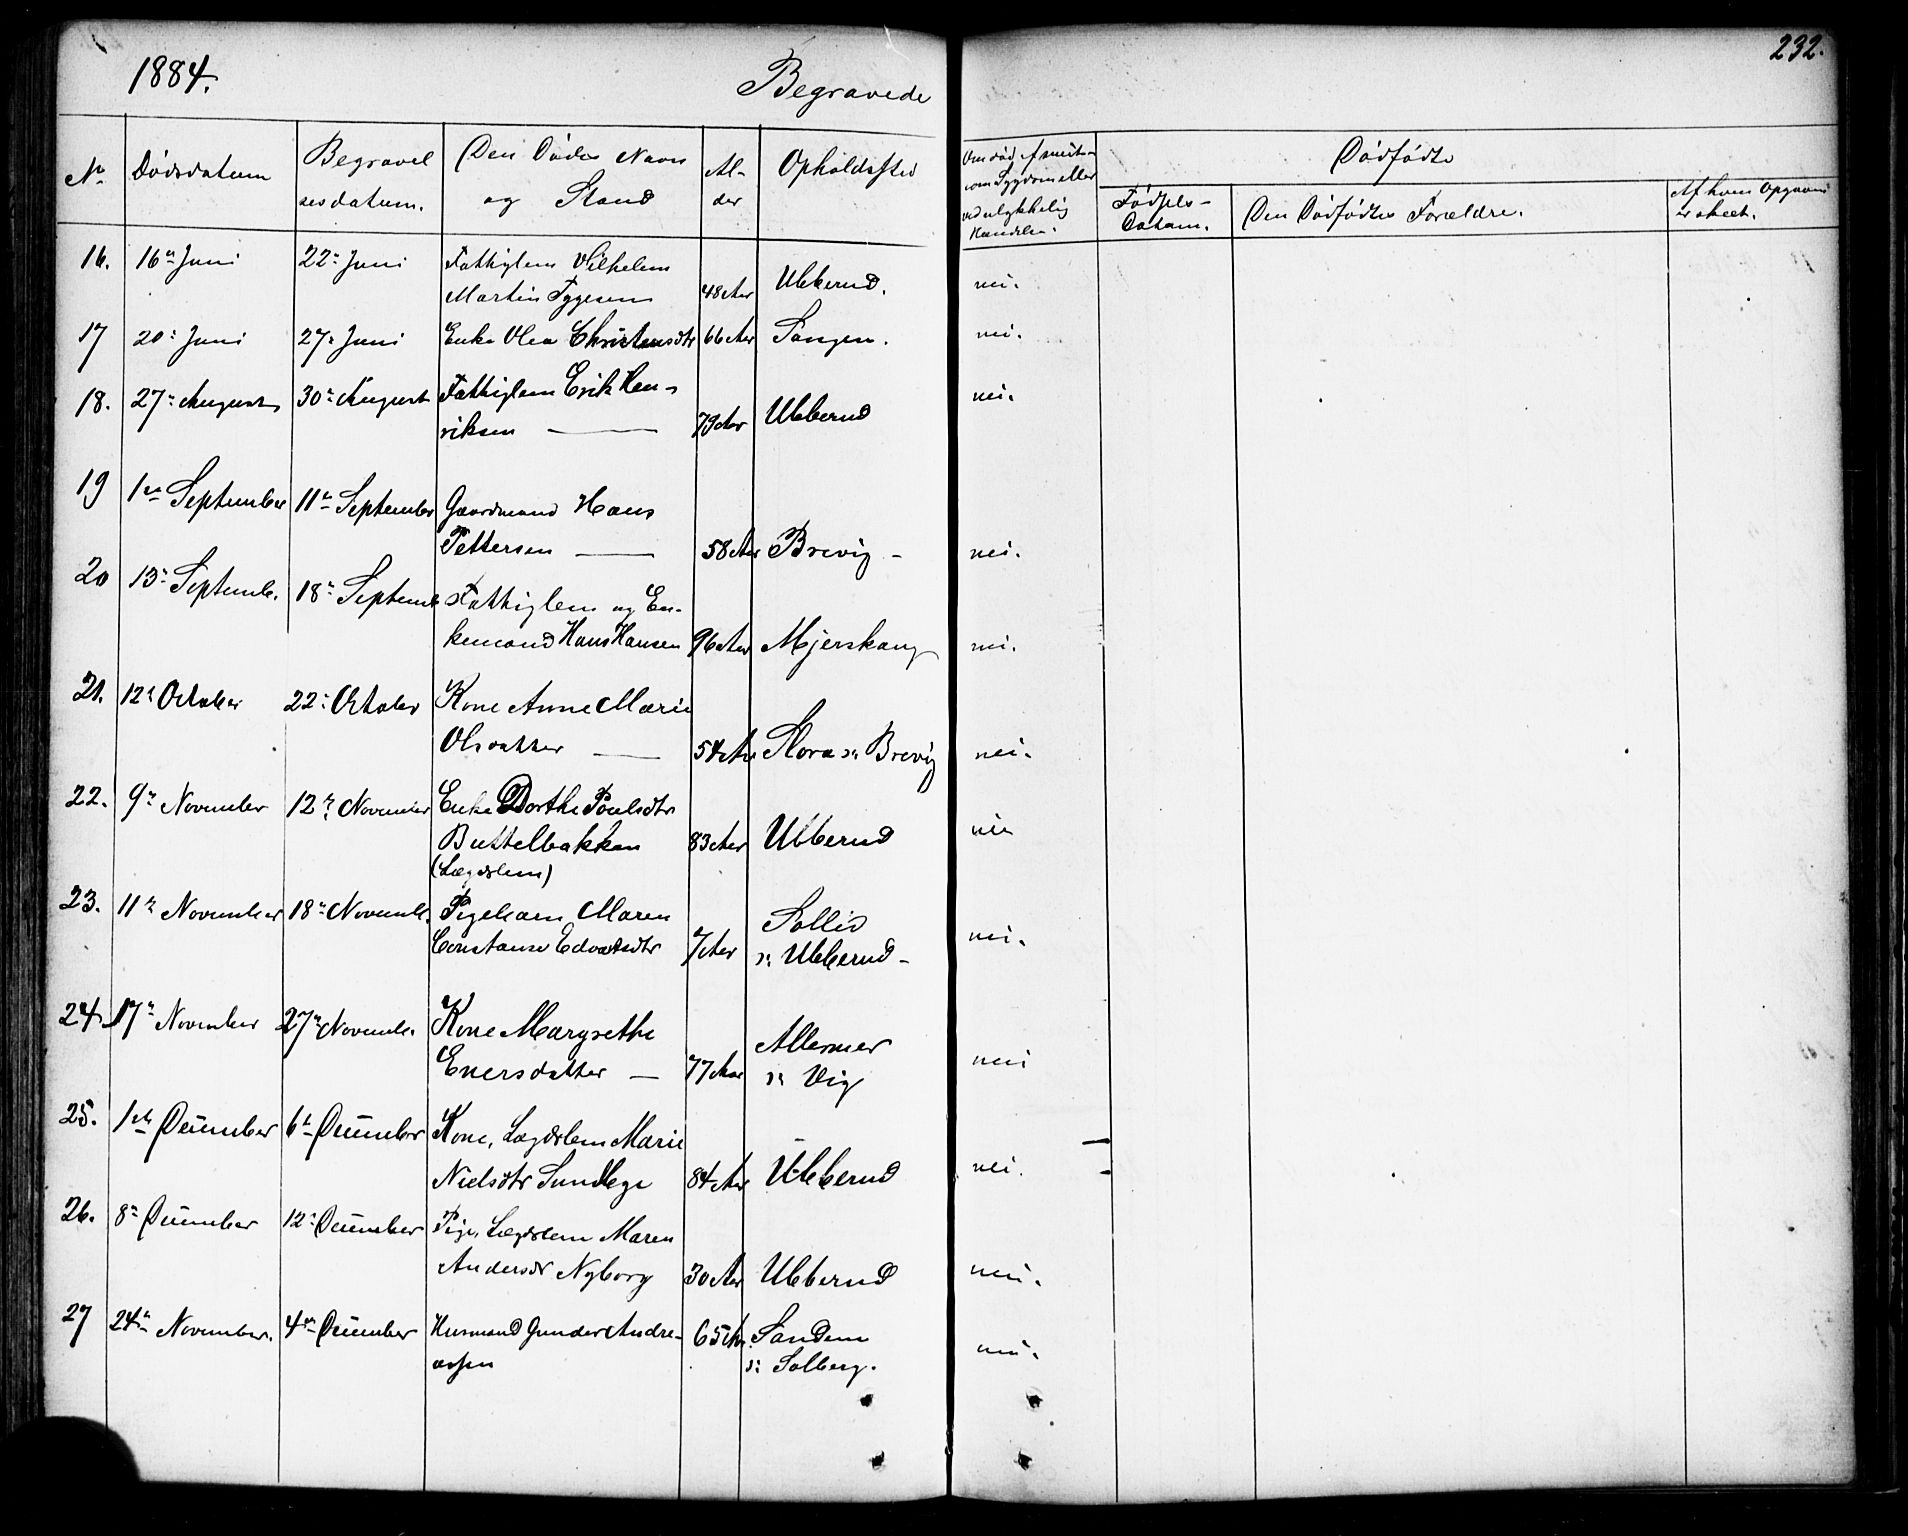 1884.
Begravede
232.
No
Dødsdatum
Begravel
sesdatum.
Den Dødes Navn
og Stand
Al-
der
Opholdssted
Om død af smit-
som Sygdom eller
ved ulykkelig
Hændelse.
Dødfødte
Fødsels-
Datum.
Den Dødfødtes Forældre.
Af hvem Opgaven
er skeet.
16. 16de Juni 22: Juni Fattiglem Vilhelm
Martin Tygesen 48 Aar Ubberud. nei.
17 20: Juni 27: Juni Enke Olea Christensdtr 66 Aar Sangen. nei.
18. 27: August 30: August Fattiglem Erik Hen-
riksen — 79 Aar Ubberud nei.
19 1ste September 11te September Gaardmand Hans
Pettersen — 58 Aar Brevig - nei.
20 13: Septemb. 18: Septemb Fattiglem og En-
kemand Hans Hansen 96 Aar Mjerskaug nei.
21. 12te October 22: October Kone Anne Marie
Olsdatter — 54 Aar Slora s: Brevig nei.
22. 9de November 12te November Enke Dorthe Poulsdtr
Buttelbakken 83 Aar Ubberud nei
(Lægdslem)
23. 11te November 18: Novemb. Pigebarn Maren Sollid
Constanse Edvartsdtr 7 Aar s: Ubberud - nei.
24. 17de November 27de Novemb. Kone Margrethe
Enersdatter — 77 Aar s: Vig nei
25. 1ste December 6te December Kone, Lægdslem Marie
Nielsdtr Sundlege 84 Aar Ubberud nei.
26. 8de December 12: December Pige, Lægdslem Maren
Andersdr Nyborg 30 Aar Ubberud nei.
27 24de November. 4de December Husmand Gunder Andre- 65 Aar. Sandem
assen s: Solberg. nei.